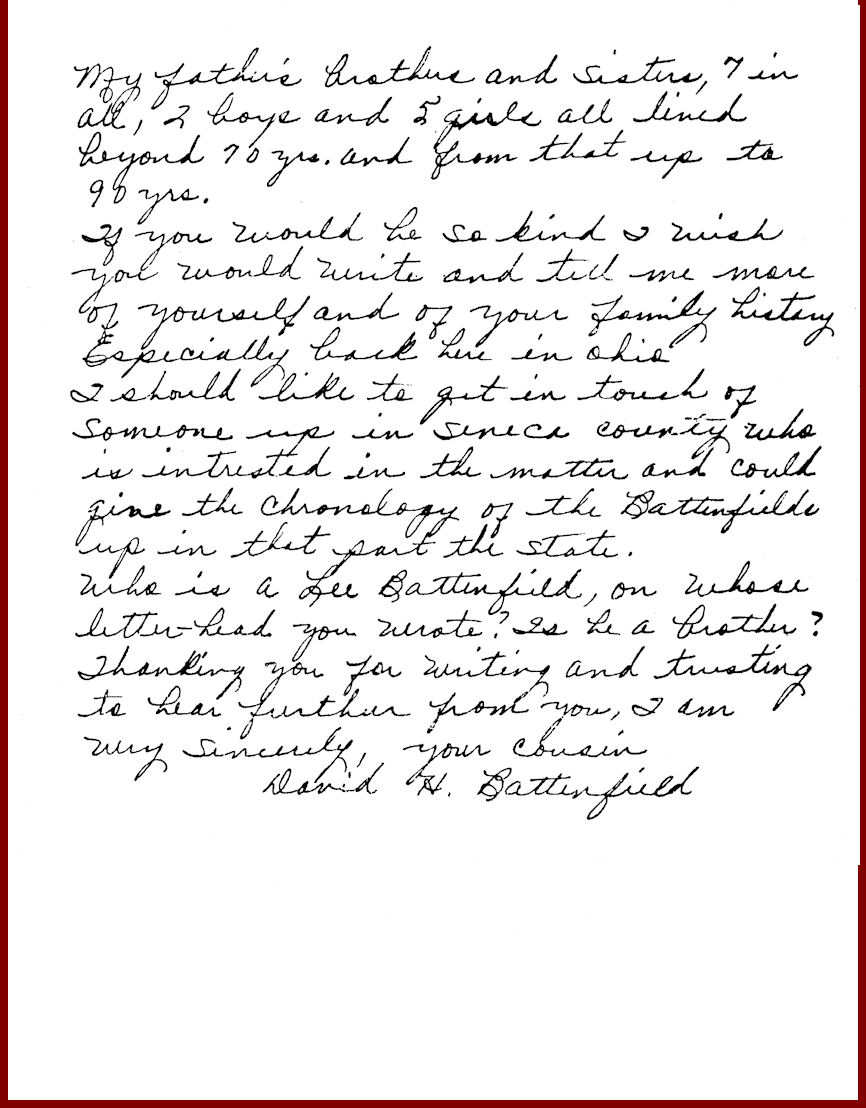 My father's brothers and sisters, 7 in
all, 2 boys and 5 girls all lived
beyond 70 yrs. and from that up to
90 yrs.
If you would be so kind I wish
you would write and tell me more
of yourself and of your family history
Especially back here in Ohio
I should like to get in touch of
someone up in Seneca county who
is intrested in the matter and could
give the chronology of the Battenfields
up in that part the state.
Who is a Lee Battenfield, on whose
letter-head you wrote? Is he a brother?
Thanking you for writing and trusting
to hear further from you, I am
very sincerely, your cousin
David H. Battenfield